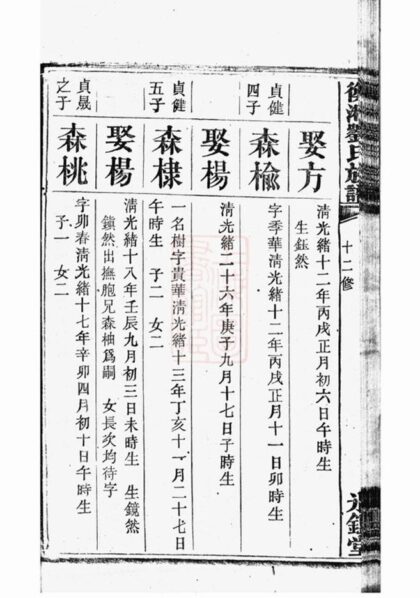 劉氏族譜
十二修
堂
娶方
清光緒十二年丙戌正月初六日午時生
生鈺然
貞健
四子
森楡
字季華清光緒十二年丙戌正月十一日卯時生
娶楊
清光緒二十六年庚子九月十七日子時生
貞健
五子
森棣
一名樹字貴華清光緒十三年丁亥十一月二十七日
午時生 子二 女二
娶楊
清光緒十八年壬辰九月初三日未時生 生鏡然
鎖然出撫胞兄森柚爲嗣 女長次均待字
貞晟
之子
森桃
字卯春清光緒十七年辛卯四月初十日午時生
子一 女二